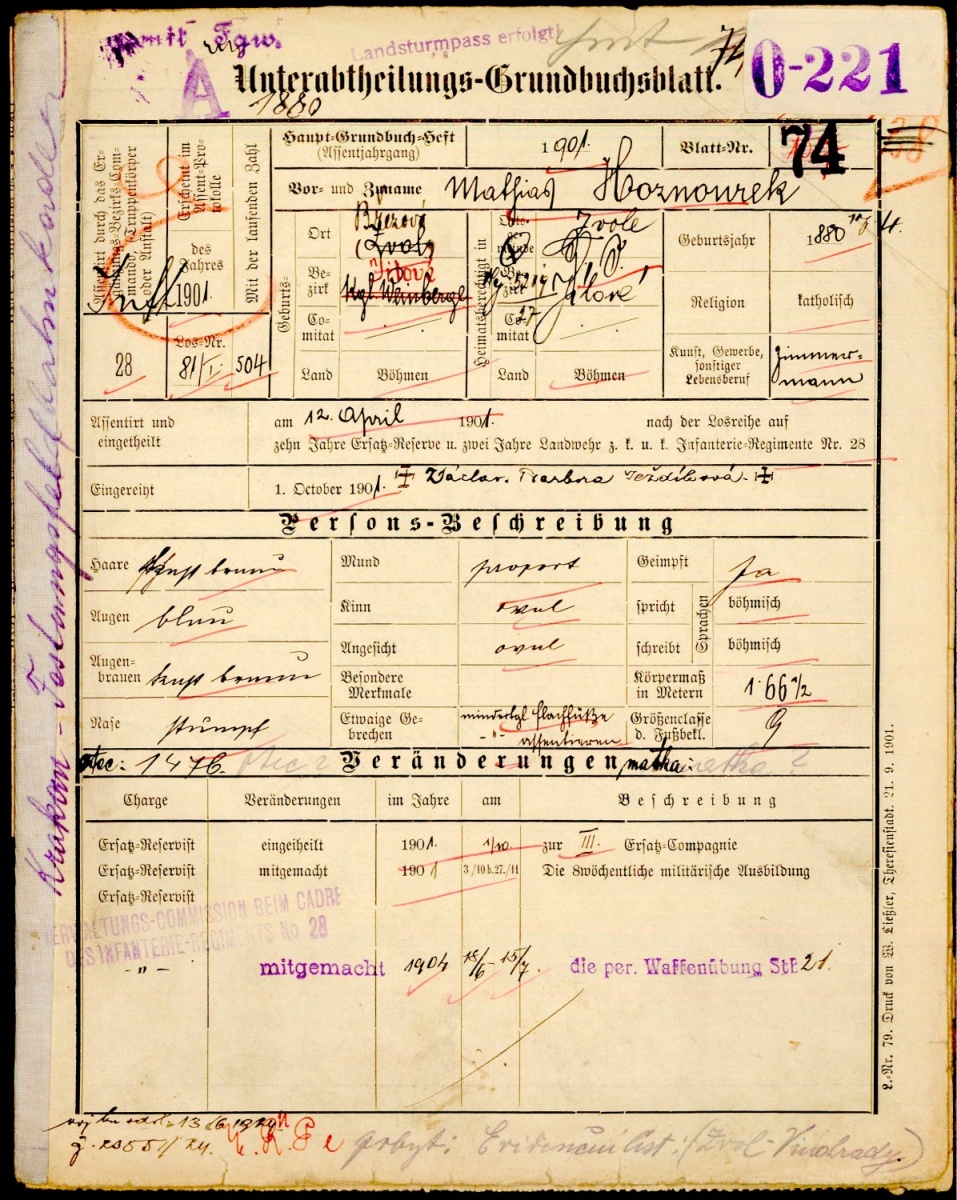 Landsturmpass erfolgt
74
0-221
A
Unterabtheilungs-Grundbuchsblatt.
1880
Assentirt durch das Ergänzungs-Bezirks-Commando, (Truppenkörper oder Anstalt)
Erscheint im Assent-Protokolle
Mit der laufenden Zahl
des Jahres
1901
Los-Nr.
28
81/I.
504
Haupt-Grundbuch-Heft
(Assentjahrgang)
1901.
Blatt-Nr.
74
Vor- und Zuname
Mathias Hoznourek
Geburts-
Ort
Březová
(Zvole)
Bezirk
Jílové
Kgl Weinberge
Comitat
Land
Böhmen
Heimatsberechtigt in
Zvole
Bezirk
Jílové
Comitat
Land
Böhmen
Geburtsjahr
1880
Religion
katholisch
Kunst, Gewerbe, sonstiger Lebensberuf
Zimmermann
Assentirt und eingetheilt
am 12. April 1901. nach der Losreihe auf
zehn Jahre Ersatz-Reserve u. zwei Jahre Landwehr z. k. u. k. Infanterie-Regimente Nr. 28
Eingereiht
1. October 1901. Václav. Barbora
Persons-Beschreibung
Haare
braun
Augen
blau
Augenbrauen
braun
Nase
stumpf
Mund
proport
Kinn
oval
Angesicht
oval
Besondere Merkmale
Etwaige Gebrechen
Geimpft
Ja
Sprachen
spricht
böhmisch
schreibt
böhmisch
Körpermaß in Metern
1·66 1/2
Größenclasse d. Fußbekl.
9
otec: 1476.
Veränderungen
matka:
Charge
Veränderungen
im Jahre
am
Beschreibung
Ersatz-Reservist eingetheilt 1901. 1/10 zur III. Ersatz-Compagnie
Ersatz-Reservist mitgemacht 1901 3./10 b. 27./11 Die 8wöchentliche militärische Ausbildung
Ersatz-Reservist
VERWALTUNGS-COMMISSION BEIM CADRE
DES INFANTERIE-REGIMENTS No 28
-"- mitgemacht 1904 18/6 - 15/7. die per. Waffenübung StB 21.
pobyt: (Zvol-Vinohrady.)
L.-Nr. 79. Druck von W. Ließler, Theresienstadt. 21. 9. 1901.